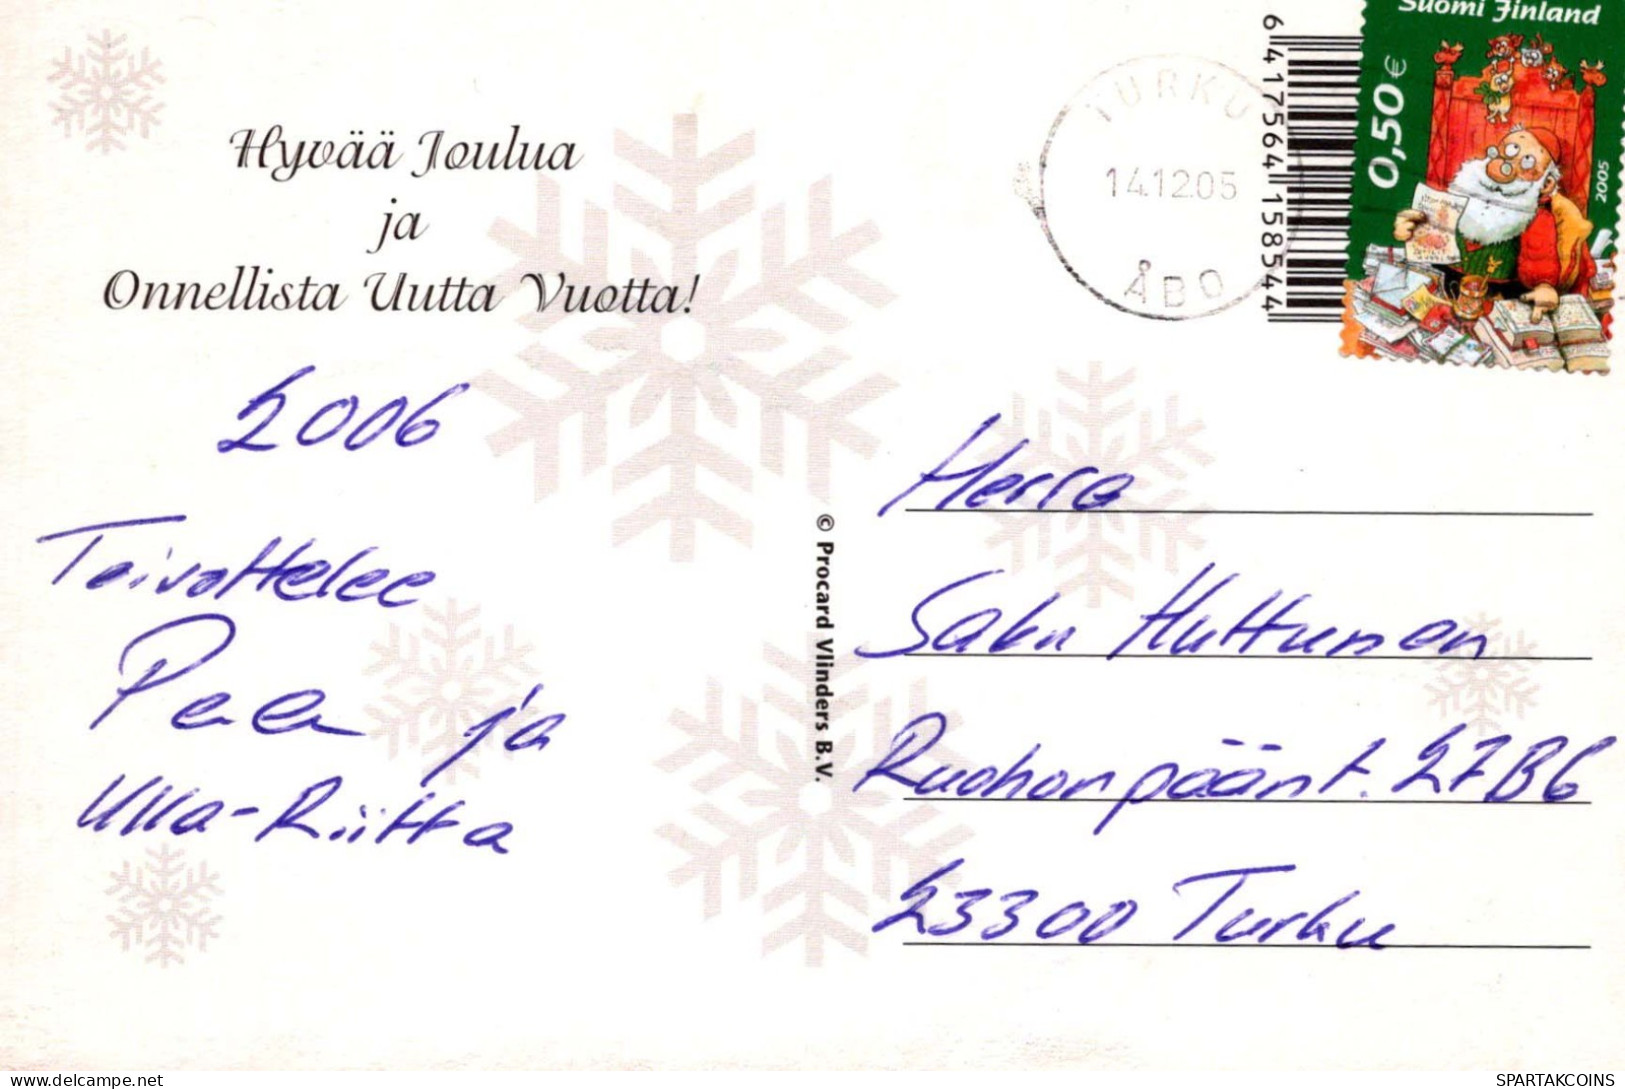 Hyvää Joulua
ja
Onnellista Uutta Vuotta!
2006
Toivottelee
ja
Ulla-Riitta
© Procard Vlinders B.V.
TURKU
14.12.05
ÅBO
6 417564 158544
Suomi Finland
0,50 €
2005
Herra
Saku Huttunen
Ruohonpäänt. 27B6
23300 Turku
SPARTAKCOINS